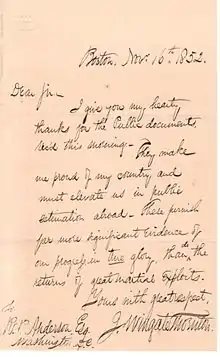 Boston, Nov. 16th, 1852.
Dear Sir –
I give you my hearty
thanks for the Public documents,
recd this morning – They make
me proud of my country, and
must elevate us in public
estimation abroad – These furnish
far more significant evidence of
our progress in true glory, than the
returns of great martial exploits.
Yours with great respect,
J. Wingate Thornton
To
Anderson Esq
Washington, D.C.